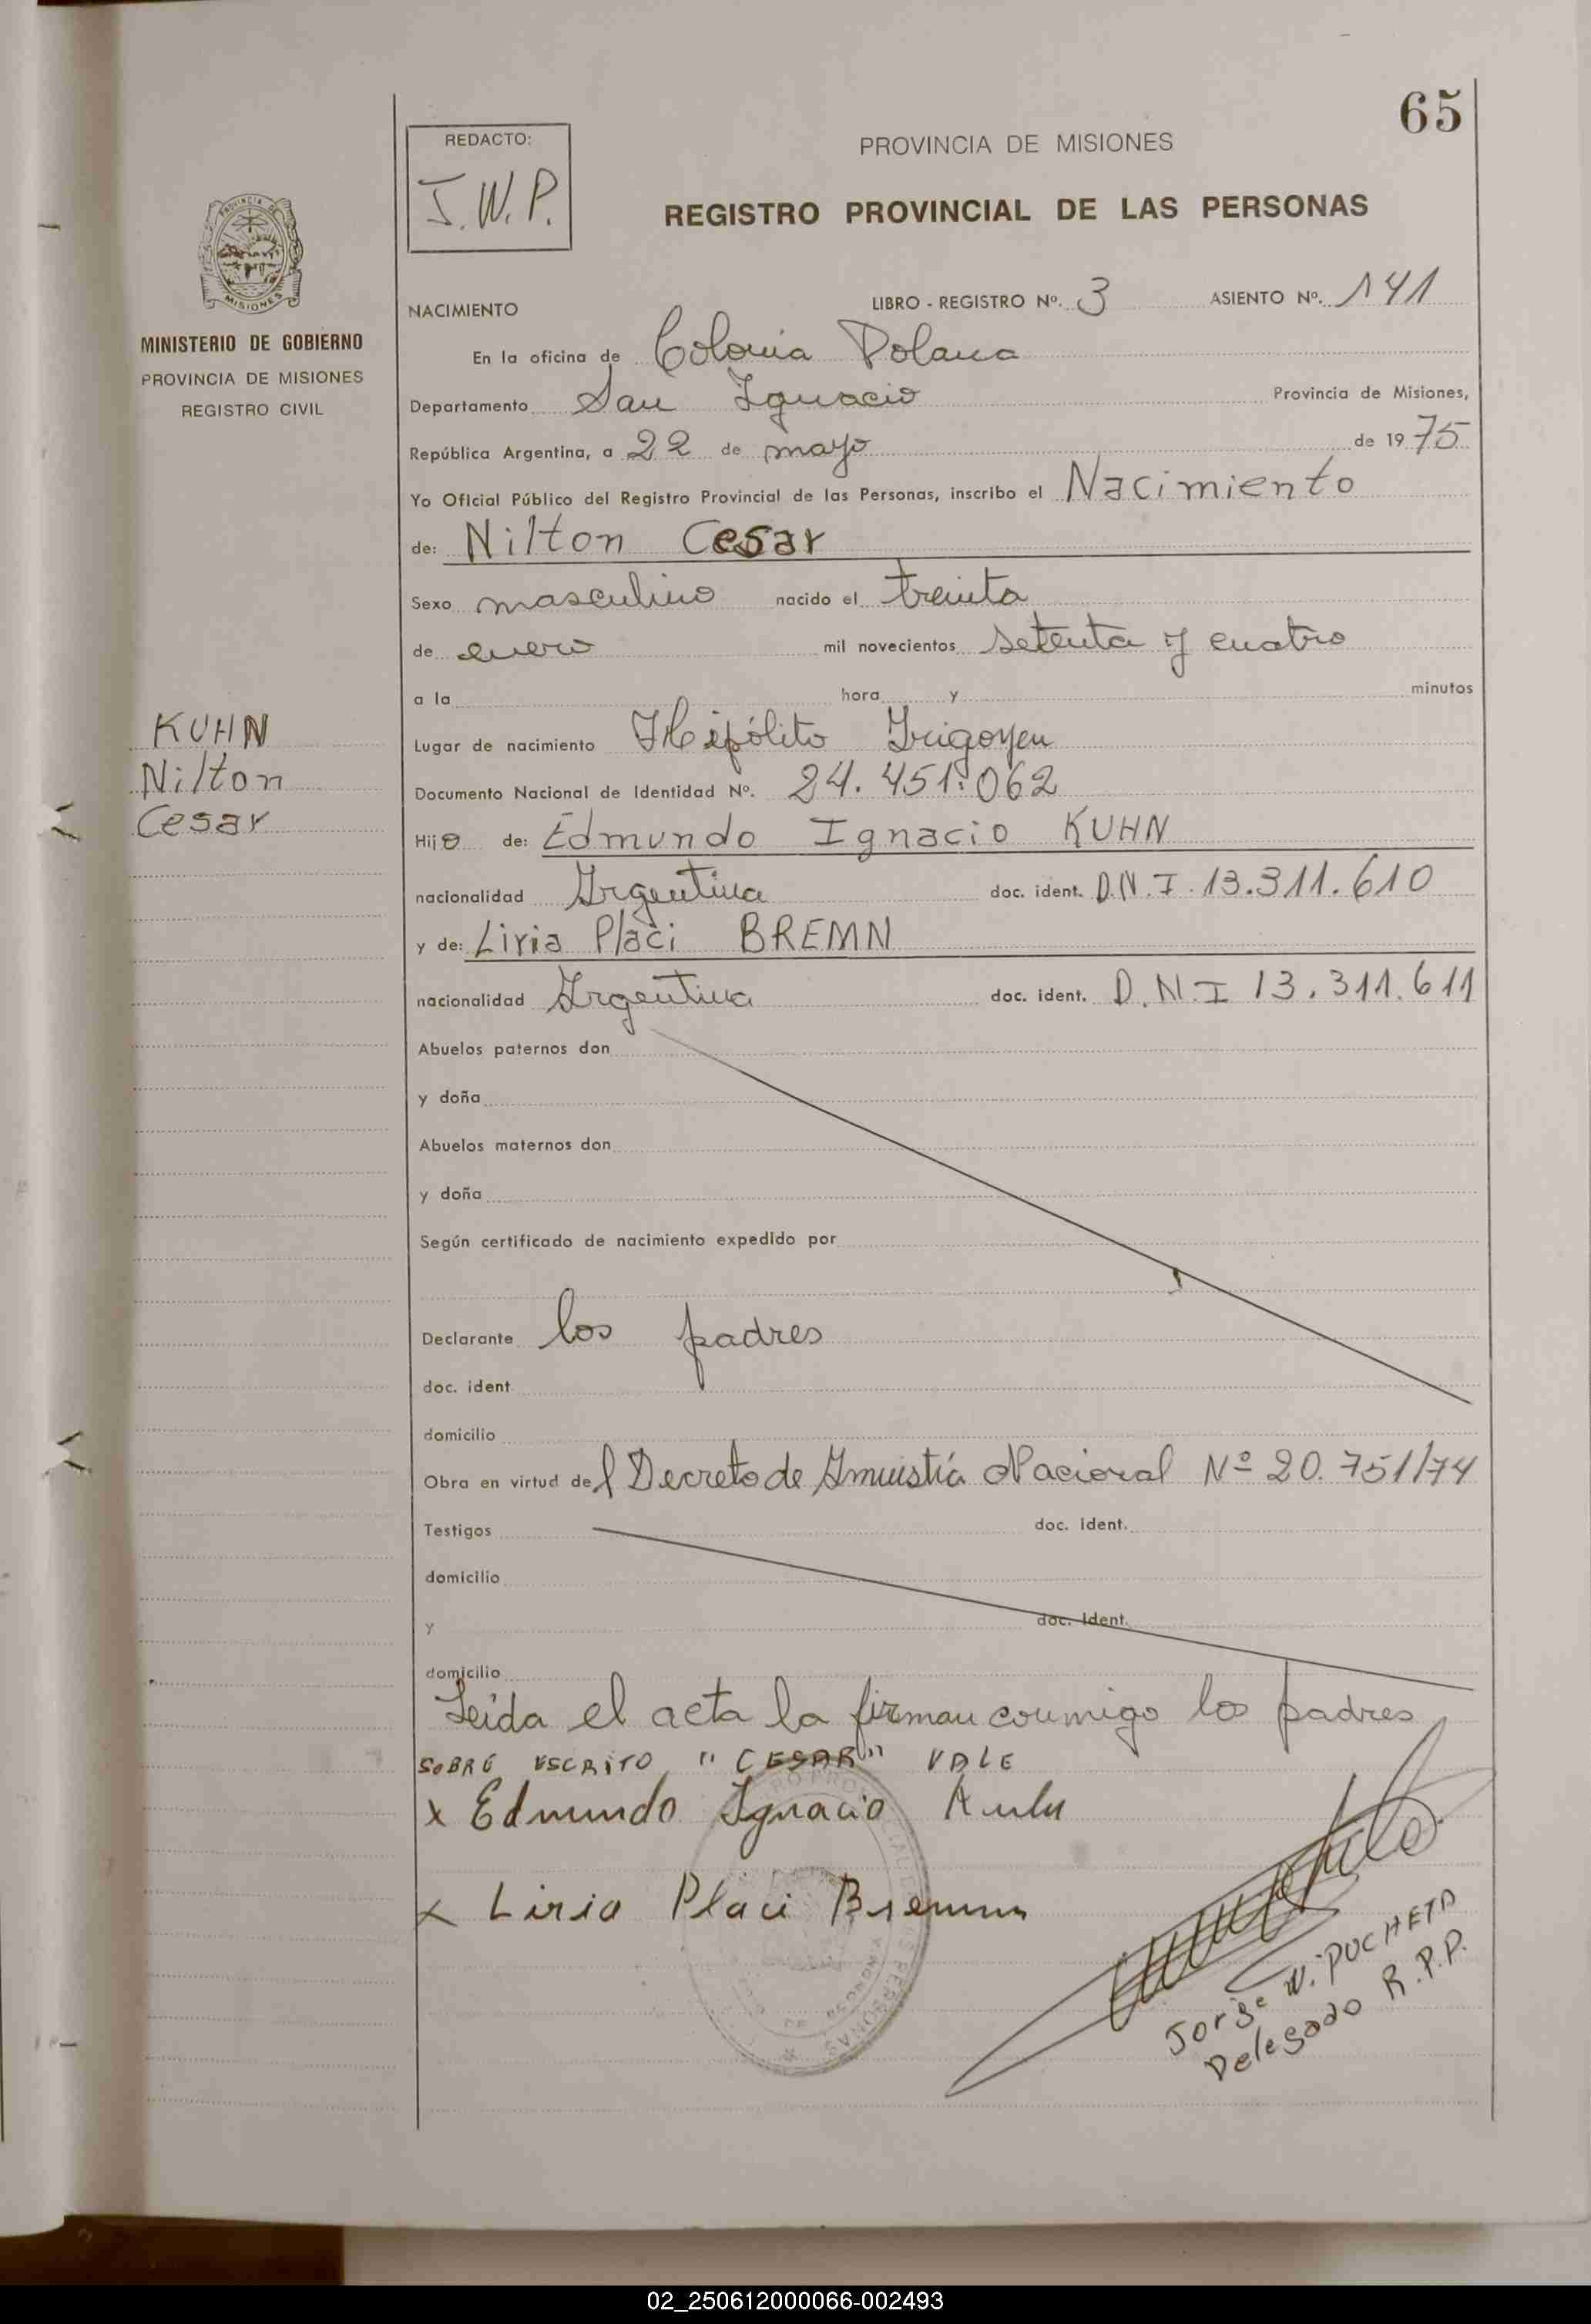 65
REDACTO:
J.W.P.
PROVINCIA DE MISIONES
REGISTRO PROVINCIAL DE LAS PERSONAS
PROVINCIA DE
MISIONES
MINISTERIO DE GOBIERNO
PROVINCIA DE MISIONES
REGISTRO CIVIL
NACIMIENTO LIBRO - REGISTRO Nº. 3 ASIENTO Nº. 141
En la oficina de Colonia Polana
Departamento San Ignacio Provincia de Misiones,
República Argentina, a 22 de mayo de 1975
Yo Oficial Público del Registro Provincial de las Personas, inscribo el Nacimiento
de: Nilton Cesar
Sexo masculino nacido el treinta
de enero mil novecientos setenta y cuatro
a la hora y minutos
KUHN
Nilton
Cesar
Lugar de nacimiento Hipólito Irigoyen
Documento Nacional de Identidad Nº. 24.451.062
Hijo de: Edmundo Ignacio KUHN
nacionalidad Argentina doc. ident. D.N.I. 13.311.610
y de: Liria Placi BREMN
nacionalidad Argentina doc. ident. D.N.I 13.311.611
Abuelos paternos don
y doña
Abuelos maternos don
y doña
Según certificado de nacimiento expedido por
Declarante los padres
doc. ident
domicilio
Obra en virtud del Decreto de Amnistía Nacional Nº 20.751/74
Testigos doc. ident.
domicilio
y doc. ident.
domicilio
Leída el acta la firman conmigo los padres
SOBRE ESCRITO "CESAR" VALE
x Edmundo Ignacio Kuhn
x Liria Placi Bremm
Jorge W. PUCHETA
Delegado R.P.P.
02_250612000066-002493